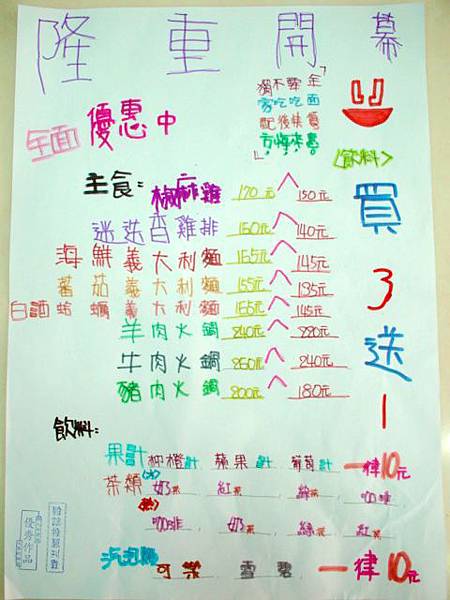 隆重開幕
全面優惠中
獨不要年
家吃吃面
配後快
方悔來
<飲料>
買3送1
主食:椒麻雞 170元 150元
迷迭香雞排 160元 140元
海鮮義大利麵 165元 145元
蕃茄義大利麵 155元 135元
白酒蛤蠣義大利麵 165元 145元
羊肉火鍋 240元 220元
牛肉火鍋 260元 240元
豬肉火鍋 200元 180元
飲料:
果汁 柳橙汁 蘋果汁 葡萄汁 一律10元
茶類(冰) 奶茶、紅茶、綠茶、咖啡
(熱) 咖啡、奶茶、綠茶、紅茶
汽泡類 可樂 雪碧 一律10元
優秀作品